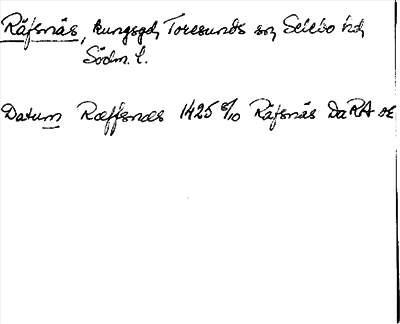 Räfsnäs, kungsgd, Toresunds sn, Selebo hd,
Södm. l.
Datum Ræffsnæs 1425 8/10 Räfsnäs DaRA